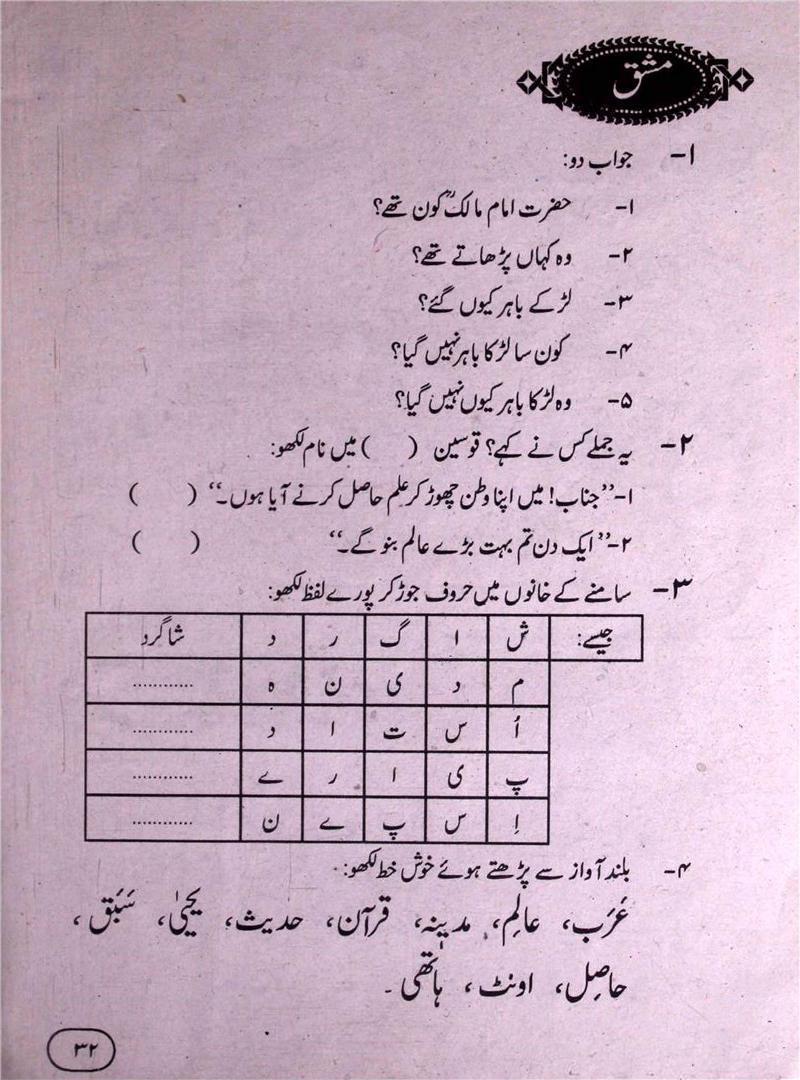 مشق
۱- جواب دو:
۱- حضرت امام مالکؒ کون تھے؟
۲- وہ کہاں پڑھاتے تھے؟
۳- لڑکے باہر کیوں گئے؟
۴- کون سا لڑکا باہر نہیں گیا؟
۵- وہ لڑکا باہر کیوں نہیں گیا؟
۲- یہ جملے کس نے کہے؟ قوسین ( ) میں نام لکھو:
۱- ’’جناب! میں اپنا وطن چھوڑ کر علم حاصل کرنے آیا ہوں۔‘‘ ( )
۲- ’’ایک دن تم بہت بڑے عالم بنو گے۔‘‘ ( )
۳- سامنے کے خانوں میں حروف جوڑ کر پورے لفظ لکھو:
جیسے: ش ا گ ر د شاگرد
م د ی ن ہ ............
اُ س ت ا د ............
پ ی ا ر ے ............
اِ س پ ے ن ............
۴- بلند آواز سے پڑھتے ہوئے خوش خط لکھو:
عَرَب، عالِم، مدینہ، قرآن، حدیث، یحییٰ، سَبَق،
حاصِل، اونٹ، ہاتھی۔
۳۲